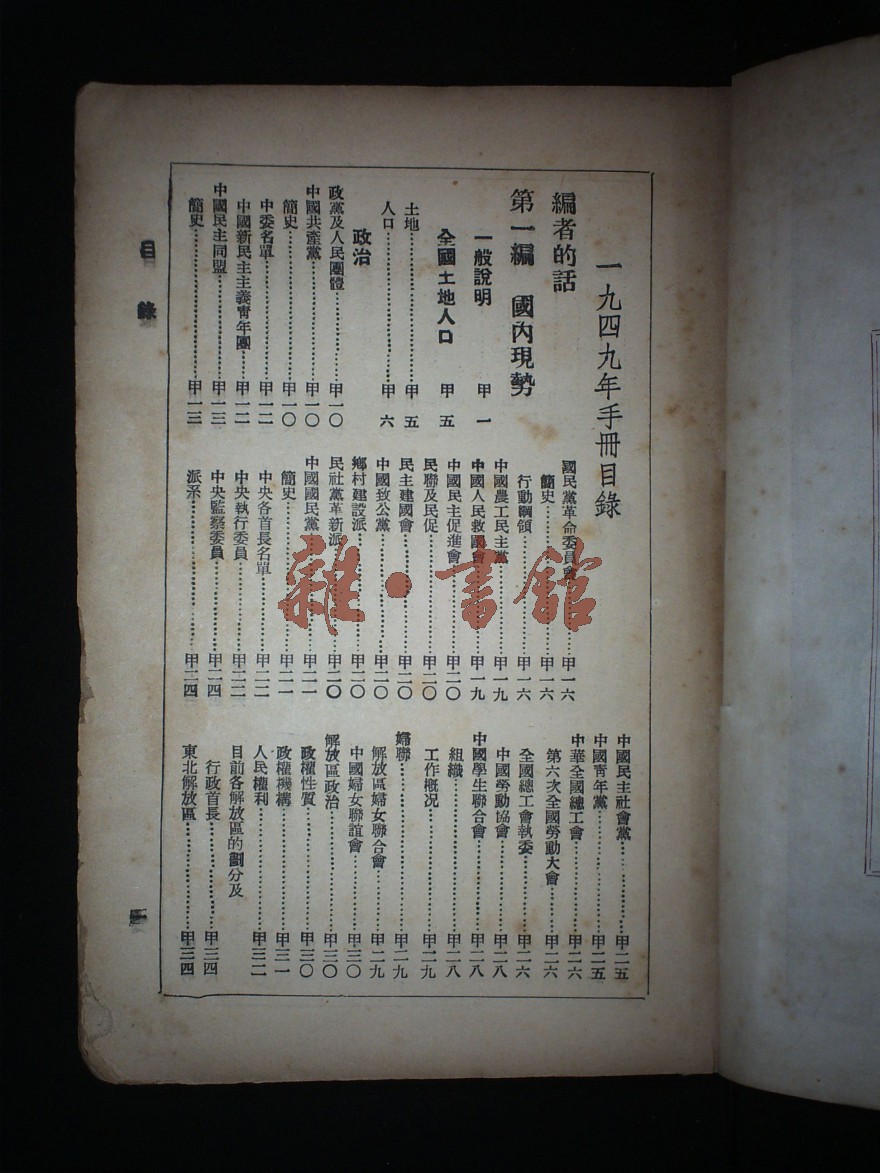 一九四九年手冊目錄
編者的話
第一編 國內現勢
一般說明 甲一
全國土地人口 甲五
土地…………甲五
人口…………甲六
政治
政黨及人民團體…………甲一〇
中國共產黨…………甲一〇
簡史…………甲一〇
中委名單…………甲一二
中國新民主主義青年團…………甲一二
中國民主同盟…………甲一三
簡史…………甲一三
國民黨革命委員會…………甲一六
簡史…………甲一六
行動綱領…………甲一六
中國農工民主黨…………甲一九
中國人民救國會…………甲一九
中國民主促進會…………甲二〇
民聯及民促…………甲二〇
民主建國會…………甲二〇
中國致公黨…………甲二〇
鄉村建設派…………甲二〇
民社黨革新派…………甲二〇
中國國民黨…………甲二一
簡史…………甲二一
中央各首長名單…………甲二二
中央執行委員…………甲二二
中央監察委員…………甲二四
派系…………甲二四
中國民主社會黨…………甲二五
中國青年黨…………甲二五
中華全國總工會…………甲二六
第六次全國勞動大會…………甲二六
全國總工會執委…………甲二六
中國勞動協會…………甲二八
中國學生聯合會…………甲二八
組織…………甲二八
工作概況…………甲二九
婦聯…………甲二九
解放區婦女聯合會…………甲二九
中國婦女聯誼會…………甲三〇
解放區政治…………甲三〇
政權性質…………甲三〇
政權機構…………甲三一
人民權利…………甲三二
目前各解放區的劃分及
行政首長…………甲三四
東北解放區…………甲三四
目錄
一
雜·書館